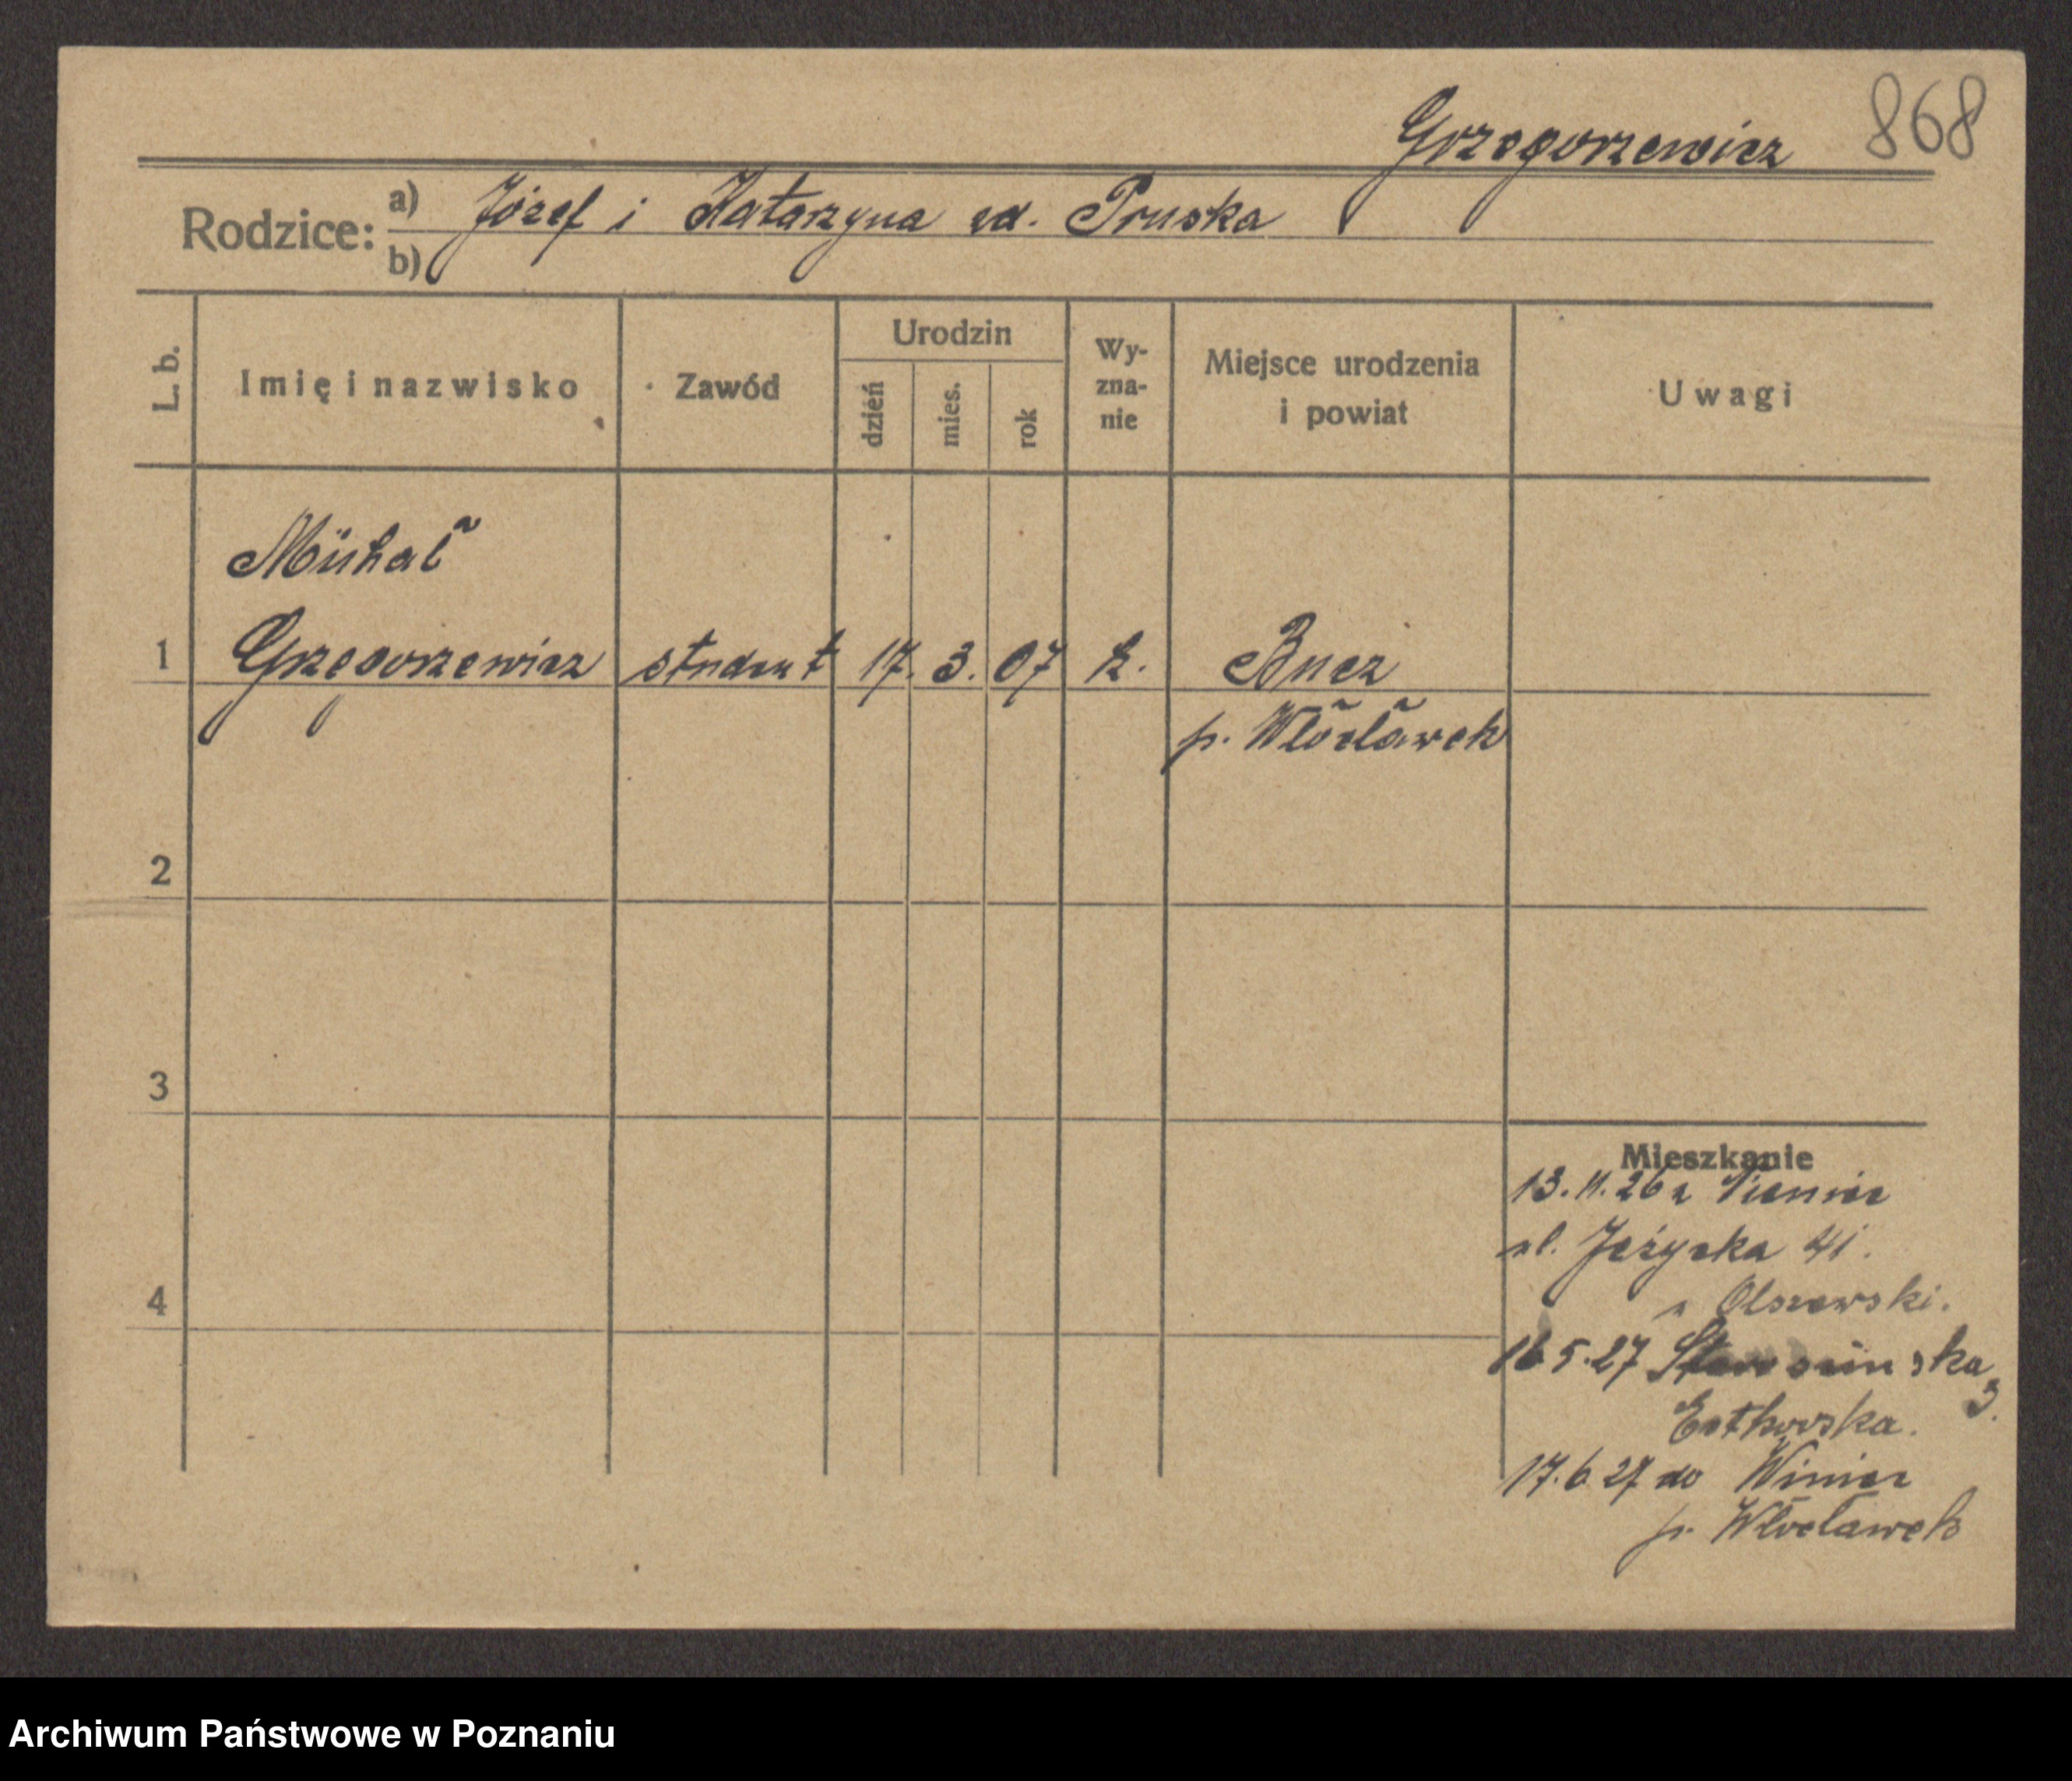 Grzegorzewicz 868
Rodzice: a) Józef i Katarzyna zd. Pruska
b)
L. b.
Imię i nazwisko
Zawód
Urodzin
dzień
mies.
rok
Wy-
zna-
nie
Miejsce urodzenia
i powiat
Uwagi
Michał
1 Grzegorzewicz student 17. 3. 07 k.
p. Włocławek
2
3
4
Mieszkanie
13.11.26 z
ul. Jeżycka 41.
u Olszewski.
16.5.27 3.
Estkowska.
17.6.27 do Winiec
p. Włocławek
Archiwum Państwowe w Poznaniu